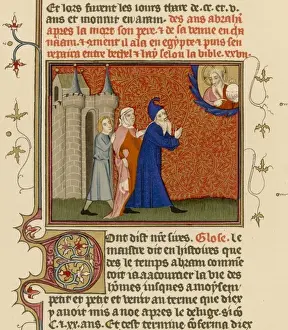 Et lors furent les iours thare de .cc. et v.
ans et mourut en aram. des ans abrahā
apres la mort son pere. & de sa venue en ca
nāam. & gment il ala en egypte & puis sen
repaira entre bethel & hay selon la bible. xxviij.
Ont dist nre sires. Glose. le
maistre dit en histoires que
des le temps abram comme
doit iaacourtier la vie des
hōmes iusques amoysen
petit et petit et venir au terme que diex
y auoit mis a noe apres le deluge. si cō
C. et .xx. ans. Et cest termine cōferma diex